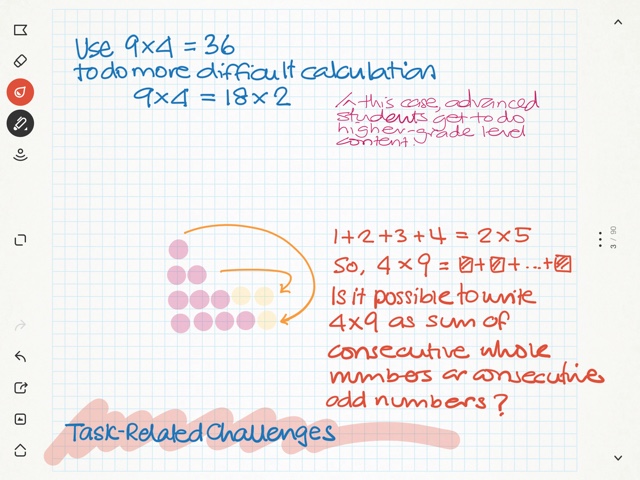 Use 9×4 = 36
to do more difficult calculation
9×4 = 18×2
In this case, advanced
students get to do
higher-grade level
content.
1+2+3+4 = 2×5
So, 4×9 = □+□+...+□
Is it possible to write
4×9 as sum of
consecutive whole
numbers or consecutive
odd numbers?
Task-Related Challenges
3 / 90